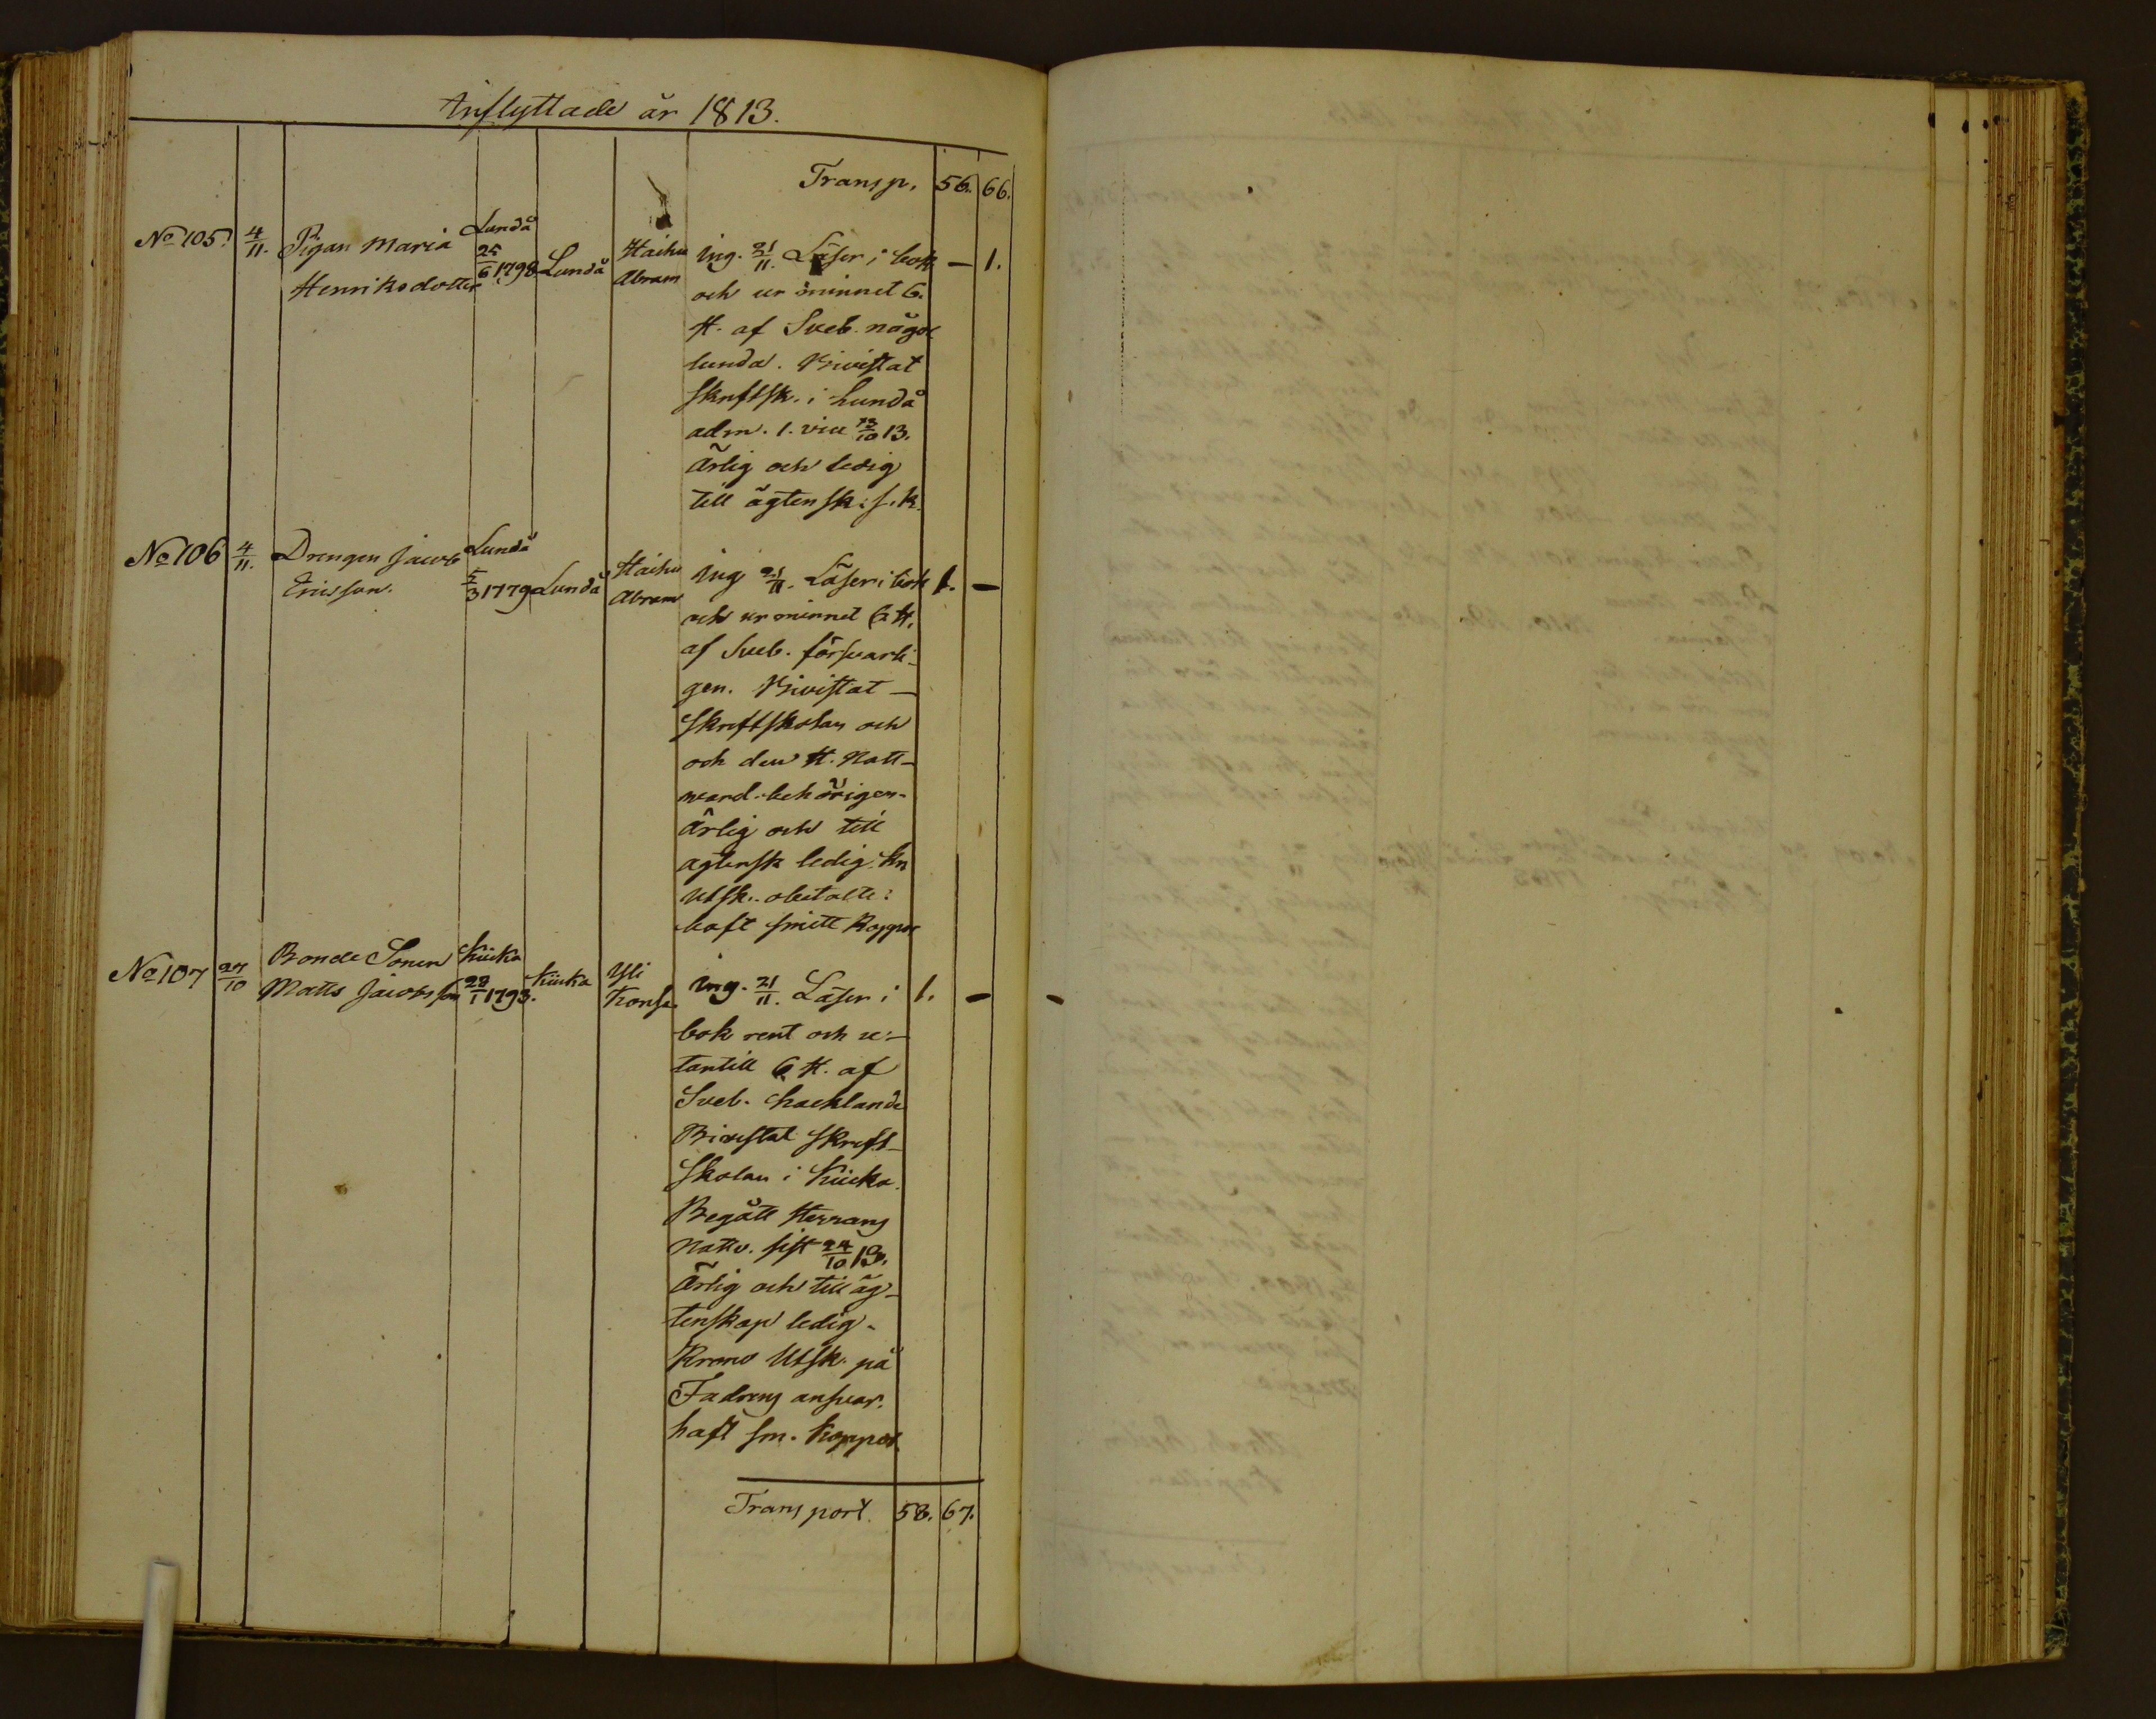 Inflyttade år 1813.
Transp. 56. 66.
No 105. 4/11. Pigan Maria Henriksdotter Lundå 25/6 1798 Lundå Haihu Abram ing. 21/11. Läser i bok — 1.
och ur minnet 6.
H. af Sveb. någor
lunda. Bivistat
skriftsk. i Lundå
adm. 1. vice 13/10 13.
Ärlig och ledig
till ägtensk: s. k.
No 106 4/11. Drengen Jacob Ericsson. Lundå 5/3 1779 Lundå Haihu Abram ing 21/11. Läser i bok 1. —
och ur minnet 6 H.
af Sveb. försvarli-
gen. Bivistat —
Skriftskolan och
och den H. Natt-
ward. behörigen.
Ärlig och till
agtensk ledig. Kr.
Utsk. obetalte:
haft smitt Koppor
No 107 27/10 Bonde Sonen Matts Jacobsson Kiuka 28/1 1793. Kiuka Yli Konsa ing. 21/11. Läser i 1. —
bok rent och u:
tantill 6 H. af
Sveb. hacklande
Bivistat skrift-
skolan i Kiuka.
Begått Herrans
Nattv. sist 24/10 13.
Ärlig och till äg-
tenskap ledig.
Krono Utsk. på
Fadrens ansvar.
haft sm. Koppor.
Transport. 58. 67.